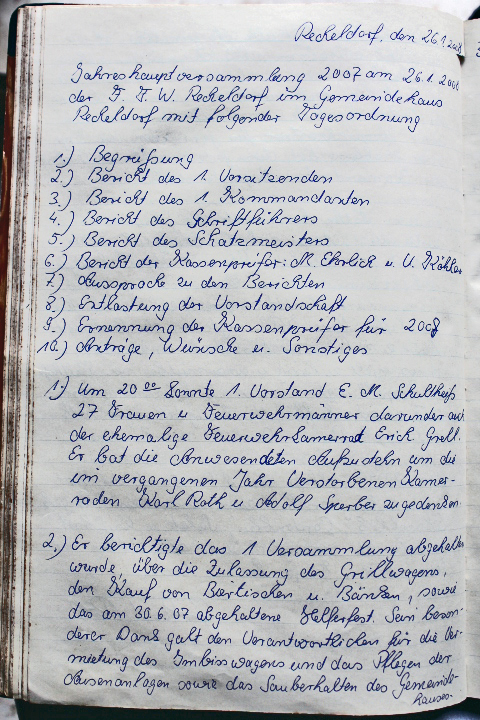 Reckeldorf, den 26.1.2008
Jahreshauptversammlung 2007 am 26.1.2008
der F. F. W. Reckeldorf im Gemeindehaus
Reckeldorf mit folgender Tagesordnung
1.) Begrüßung
2.) Bericht des 1. Vorsitzenden
3.) Bericht des 1. Kommandanten
4.) Bericht des Schriftführers
5.) Bericht des Schatzmeisters
6.) Bericht der Kassenprüfer: M. Ehrlich u. U. Köhler
7.) Aussprache zu den Berichten
8.) Entlastung der Vorstandschaft
9.) Ernennung der Kassenprüfer für 2008
10.) Anträge, Wünsche u. Sonstiges
1.) Um 20 00 konnte 1. Vorstand E. M. Schultheiß
27 Frauen u Feuerwehrmänner darunder auch
der ehemalige Feuerwehrkamerrat Erich Grell.
Er bat die Anwesendeten Aufzustehn um die
im vergangenen Jahr Verstorbenen Kamer-
raden Karl Roth u Adolf Sperber zu gedenken.
2.) Er berichtigte das 1 Versammlung abgehalten
wurde, über die Zulassung des Grillwagens,
den Kauf von Biertischen u. Bänken, sowie
das am 30.6.07 abgehaltene Helferfest. Sein beson-
derer Dank galt den Verantwortlichen für die Ver-
mietung des Imbisswagens und das Pflegen der
Aussenanlagen sowie das Sauberhalten des Gemeinde-
hauses.